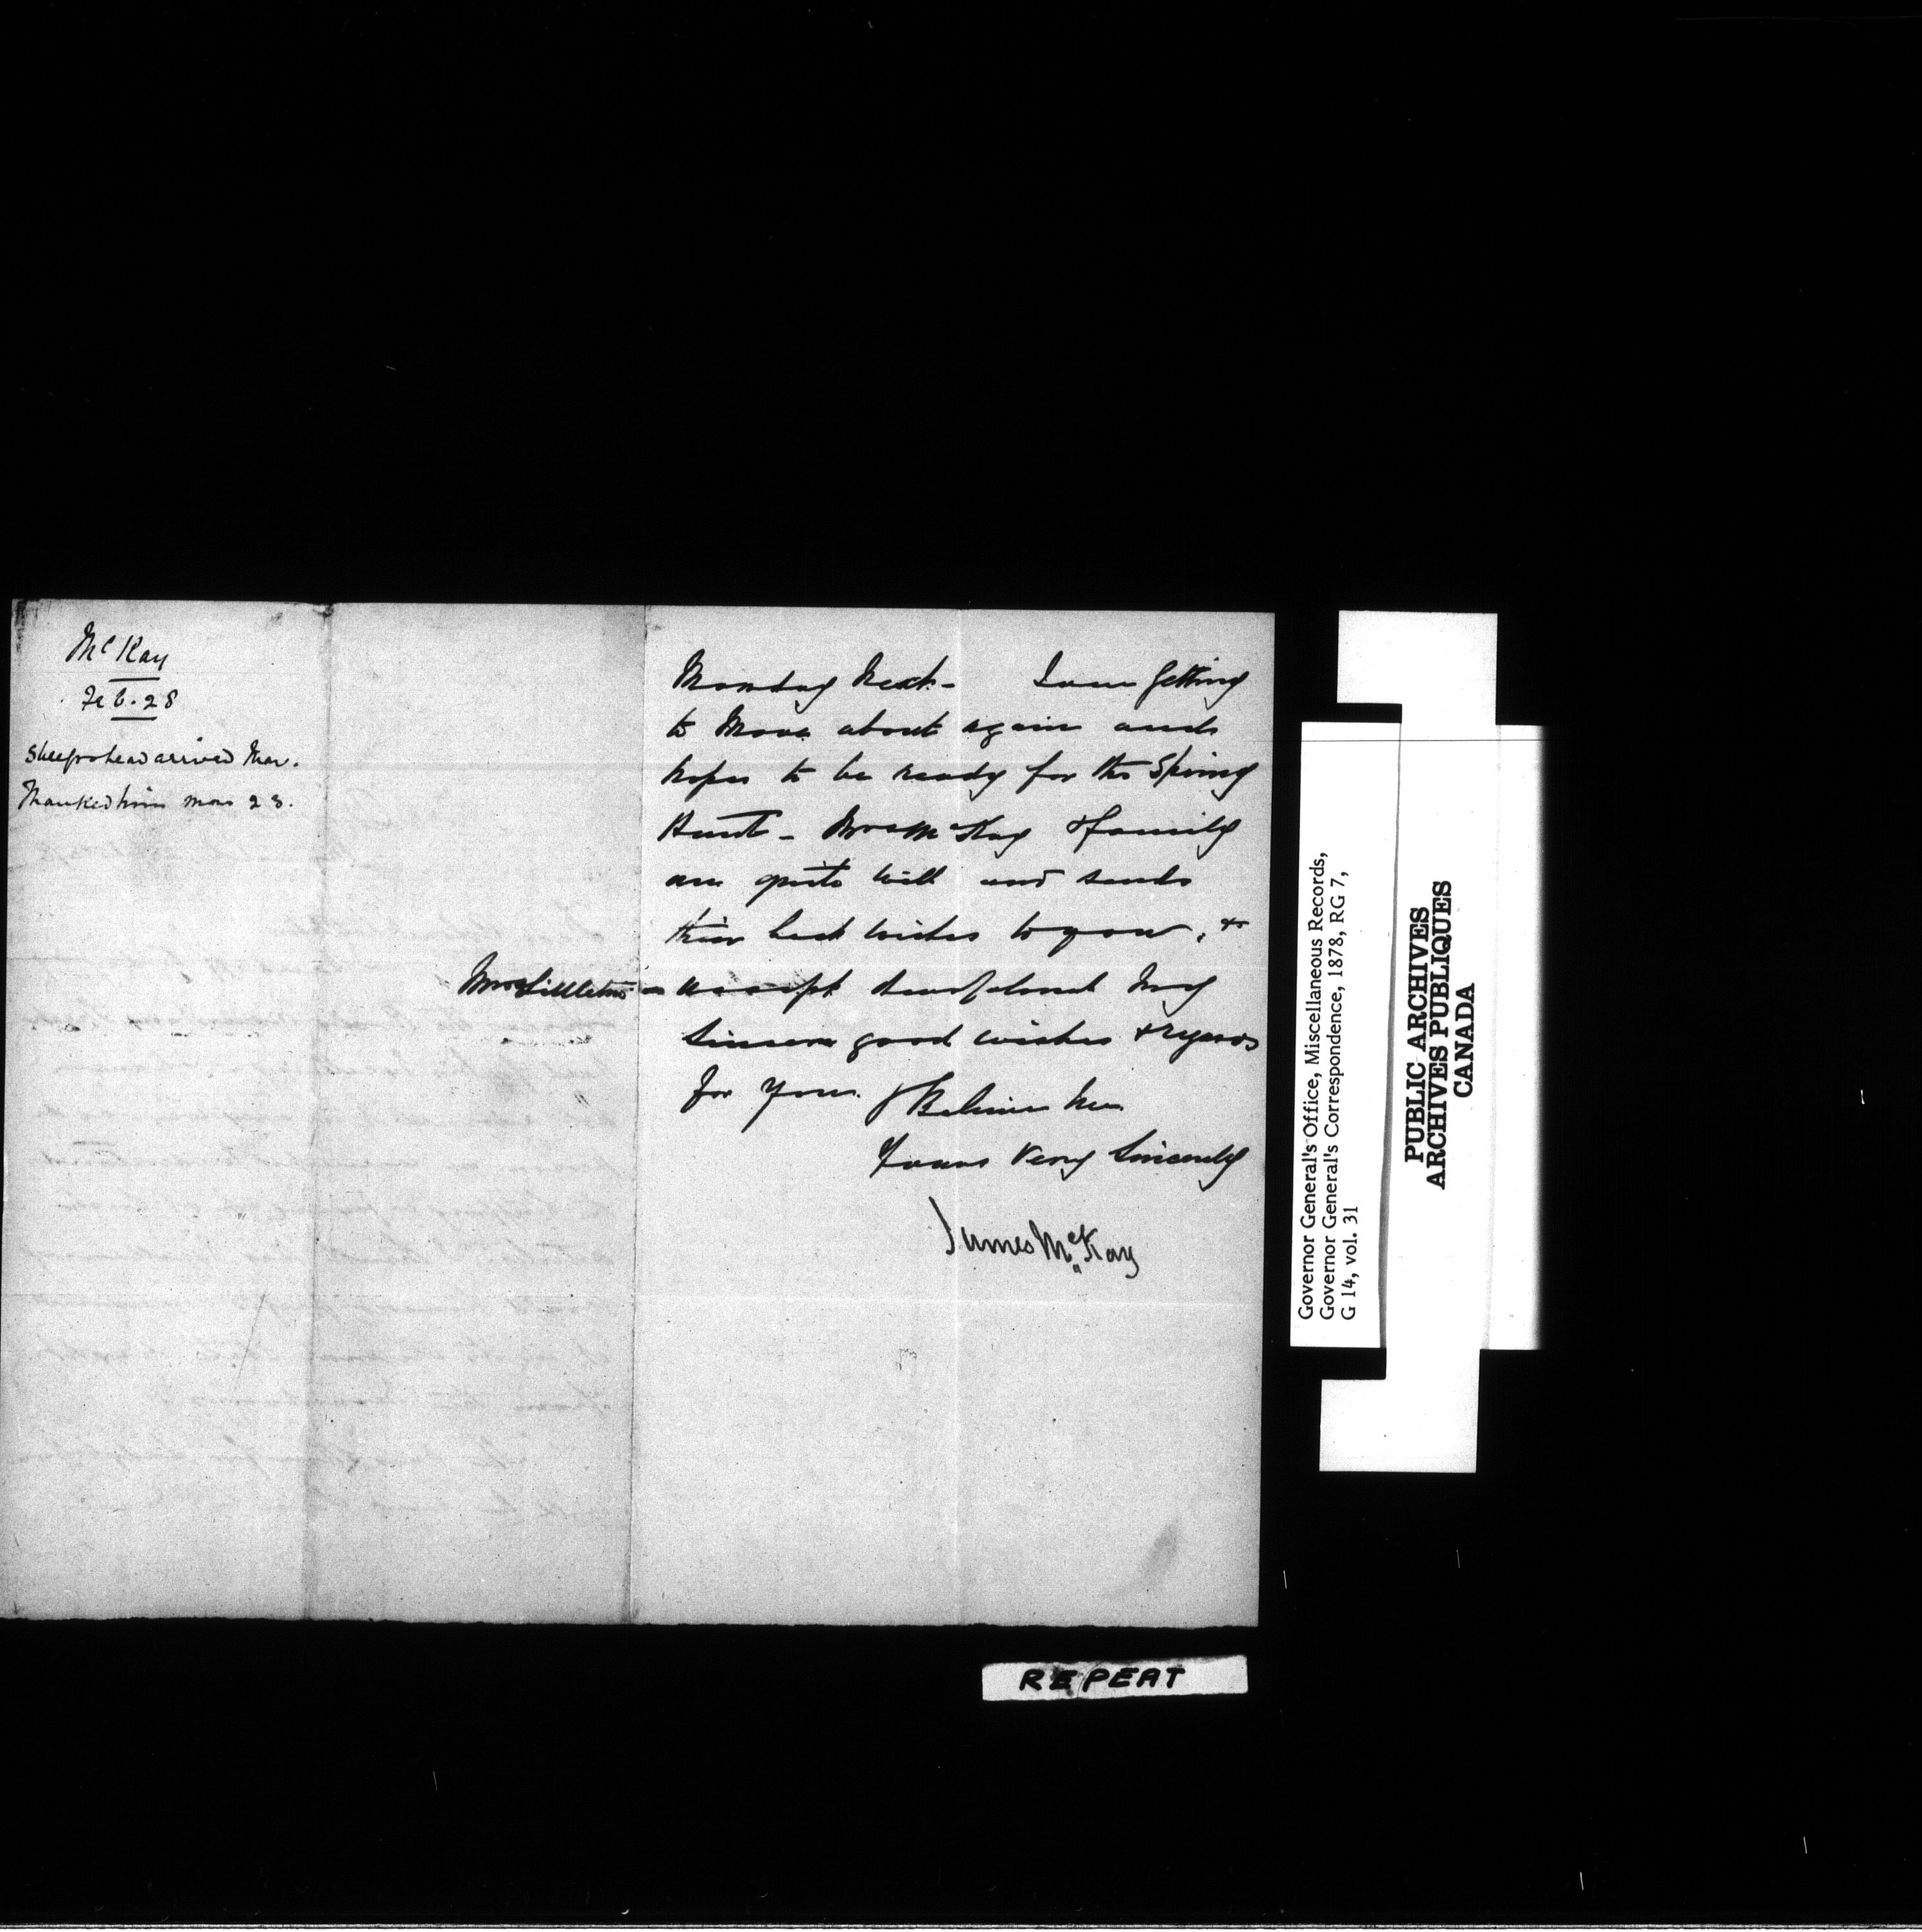 McKay
Feb. 28
Sheepshead arrived Mar.
Thanked him Mar 23.
Monday Next - I am getting
to Move about again and
hopes to be ready for the Spring
Hunt - Mrs McKay & family
are quite well and sends
their best wishes to you, &
Mrs Littleton - accept dear Colonel My
Sincere good wishes & regards
for you. & Believe Me
Yours Very Sincerely
James McKay
Governor General's Office, Miscellaneous Records,
Governor General's Correspondence, 1878, RG 7,
G 14, vol. 31
PUBLIC ARCHIVES
ARCHIVES PUBLIQUES
CANADA
REPEAT